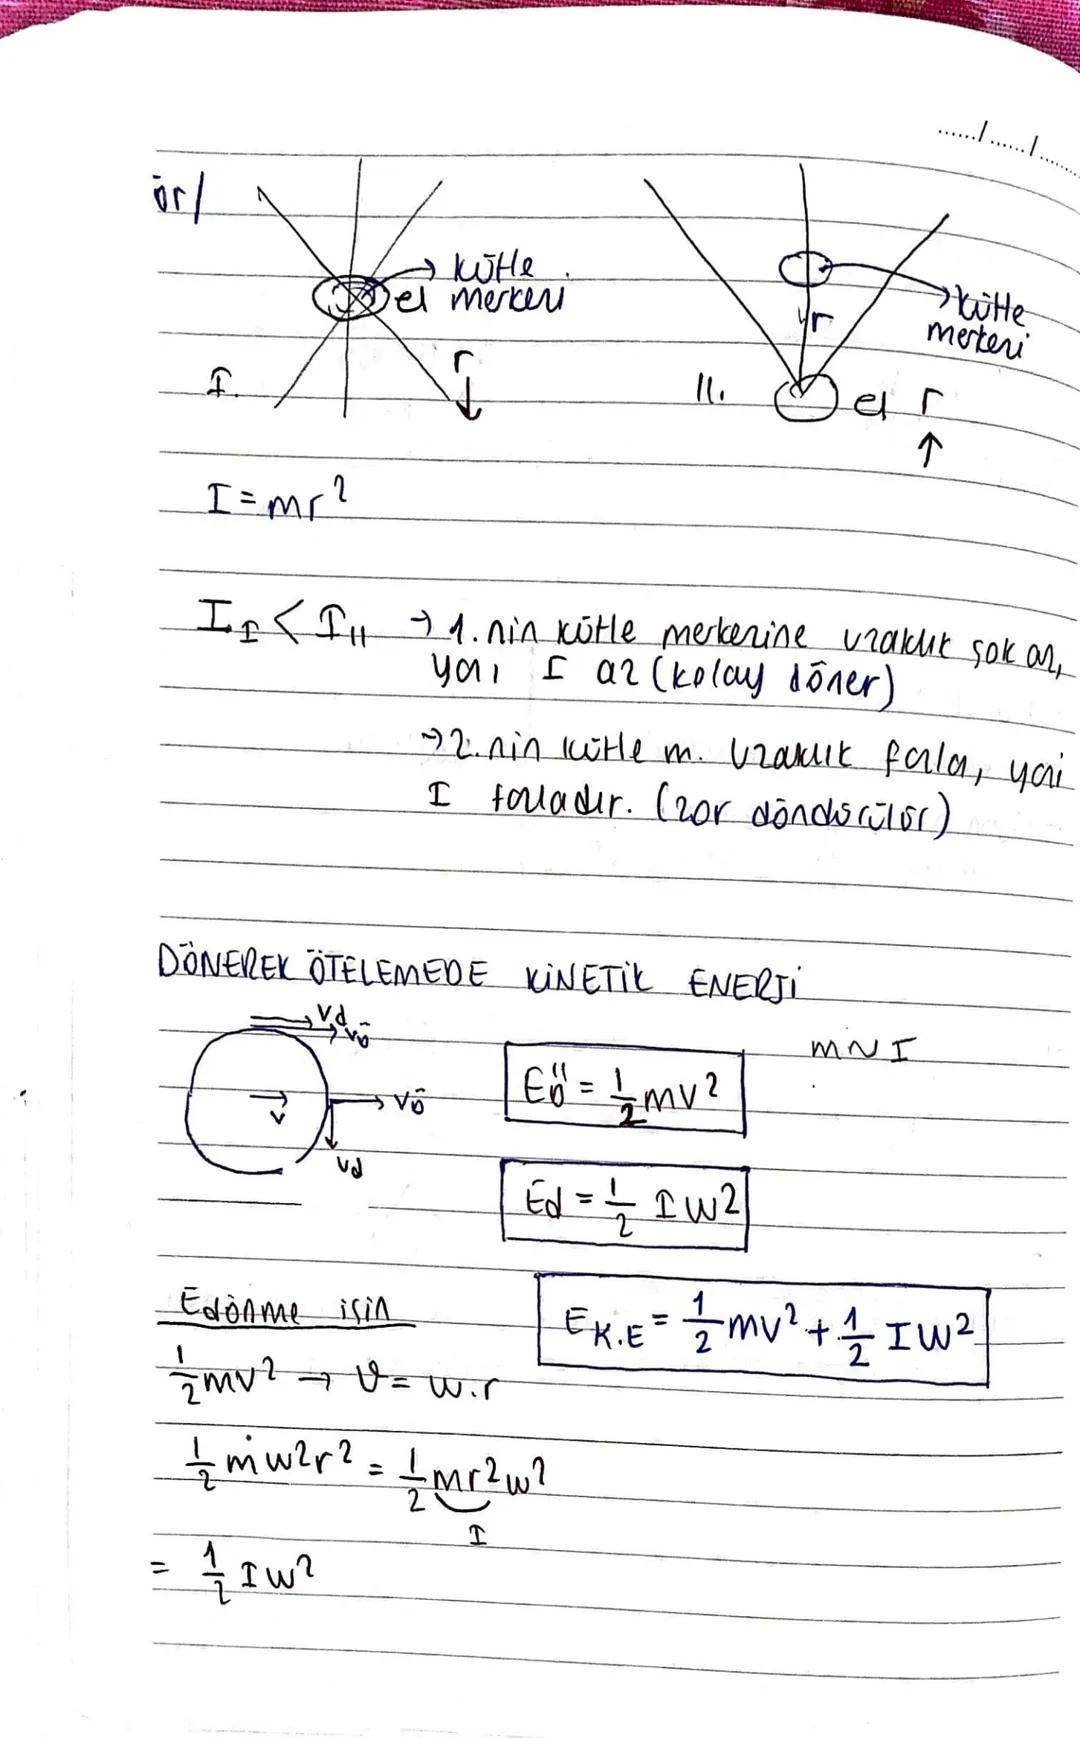 ....../....../......
ör/
kütle
el merkezi
r
↓
I.
kütle
merkezi
r
II.
el r
↑
I = mr²
I_I < I_II → 1. nin kütle merkezine uzaklık çok az,
yani I az (kolay döner)
→ 2. nin kütle m. uzaklık fazla, yani
I fazladır. (zor döndürülür)
DÖNEREK ÖTELEMEDE KİNETİK ENERJİ
Vd
Vö
V
Vö
Vd
Eö = 1/2 mv²
m~I
Ed = 1/2 I w²
Edönme için
E_K.E = 1/2 mv² + 1/2 I w²
1/2 mv² → V = w.r
1/2 mw²r² = 1/2 mr²w²
I
= 1/2 I w²